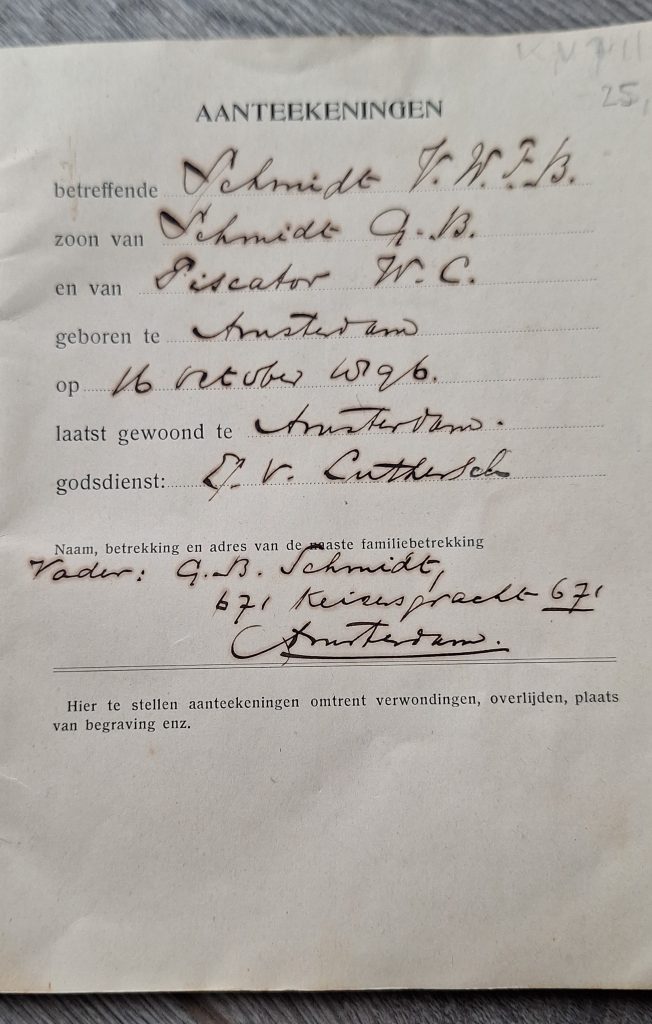 25,
AANTEEKENINGEN
betreffende Schmidt V. W. F. B.
zoon van Schmidt G. B.
en van Piscator W. C.
geboren te Amsterdam
op 16 October 1896.
laatst gewoond te Amsterdam.
godsdienst: Ev. Luthersch
Naam, betrekking en adres van de naaste familiebetrekking
Vader: G. B. Schmidt,
671 Keizersgracht 671
Amsterdam.
Hier te stellen aanteekeningen omtrent verwondingen, overlijden, plaats
van begraving enz.